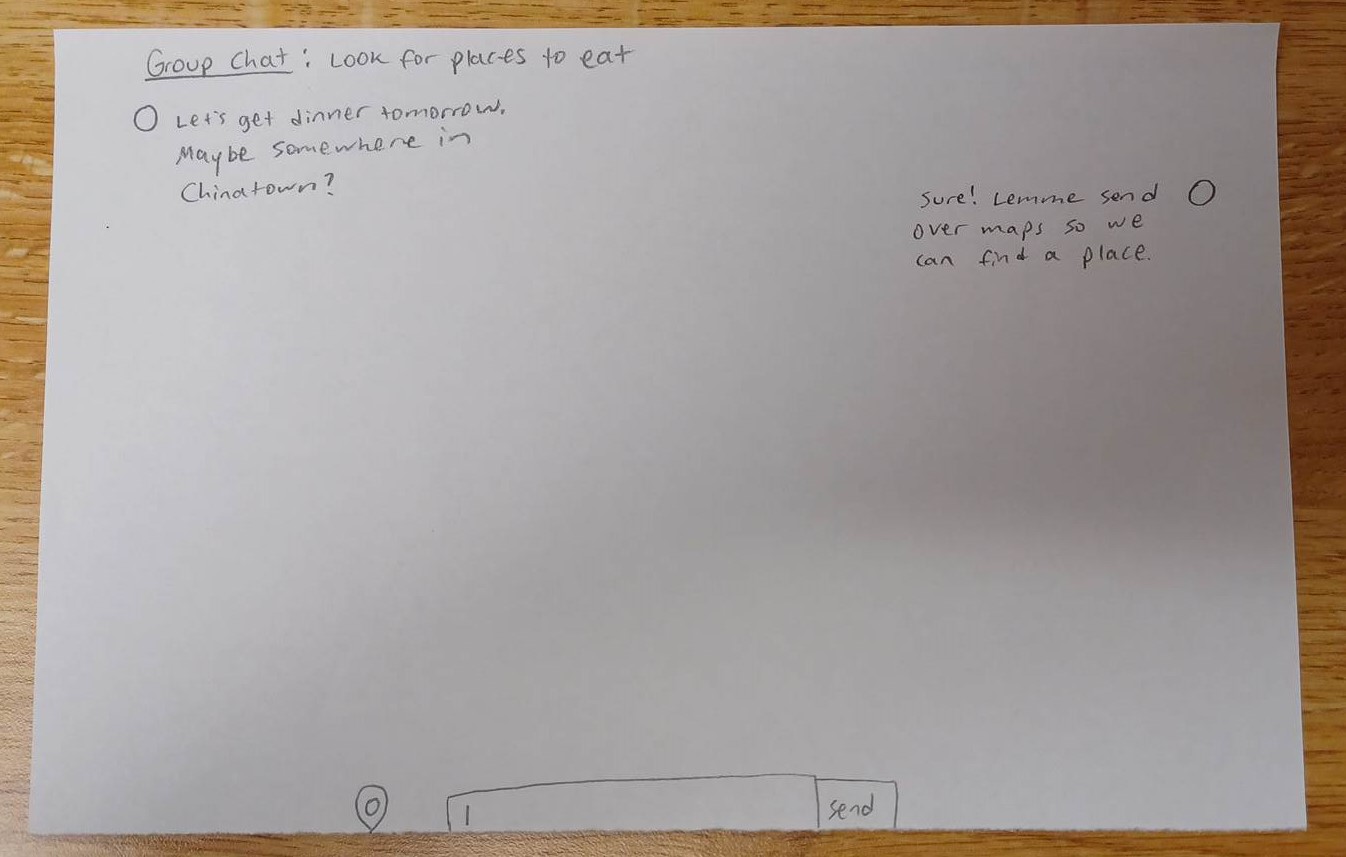 Group Chat: Look for places to eat
Let's get dinner tomorrow.
Maybe somewhere in
Chinatown?
Sure! Lemme send
over maps so we
can find a place.
send